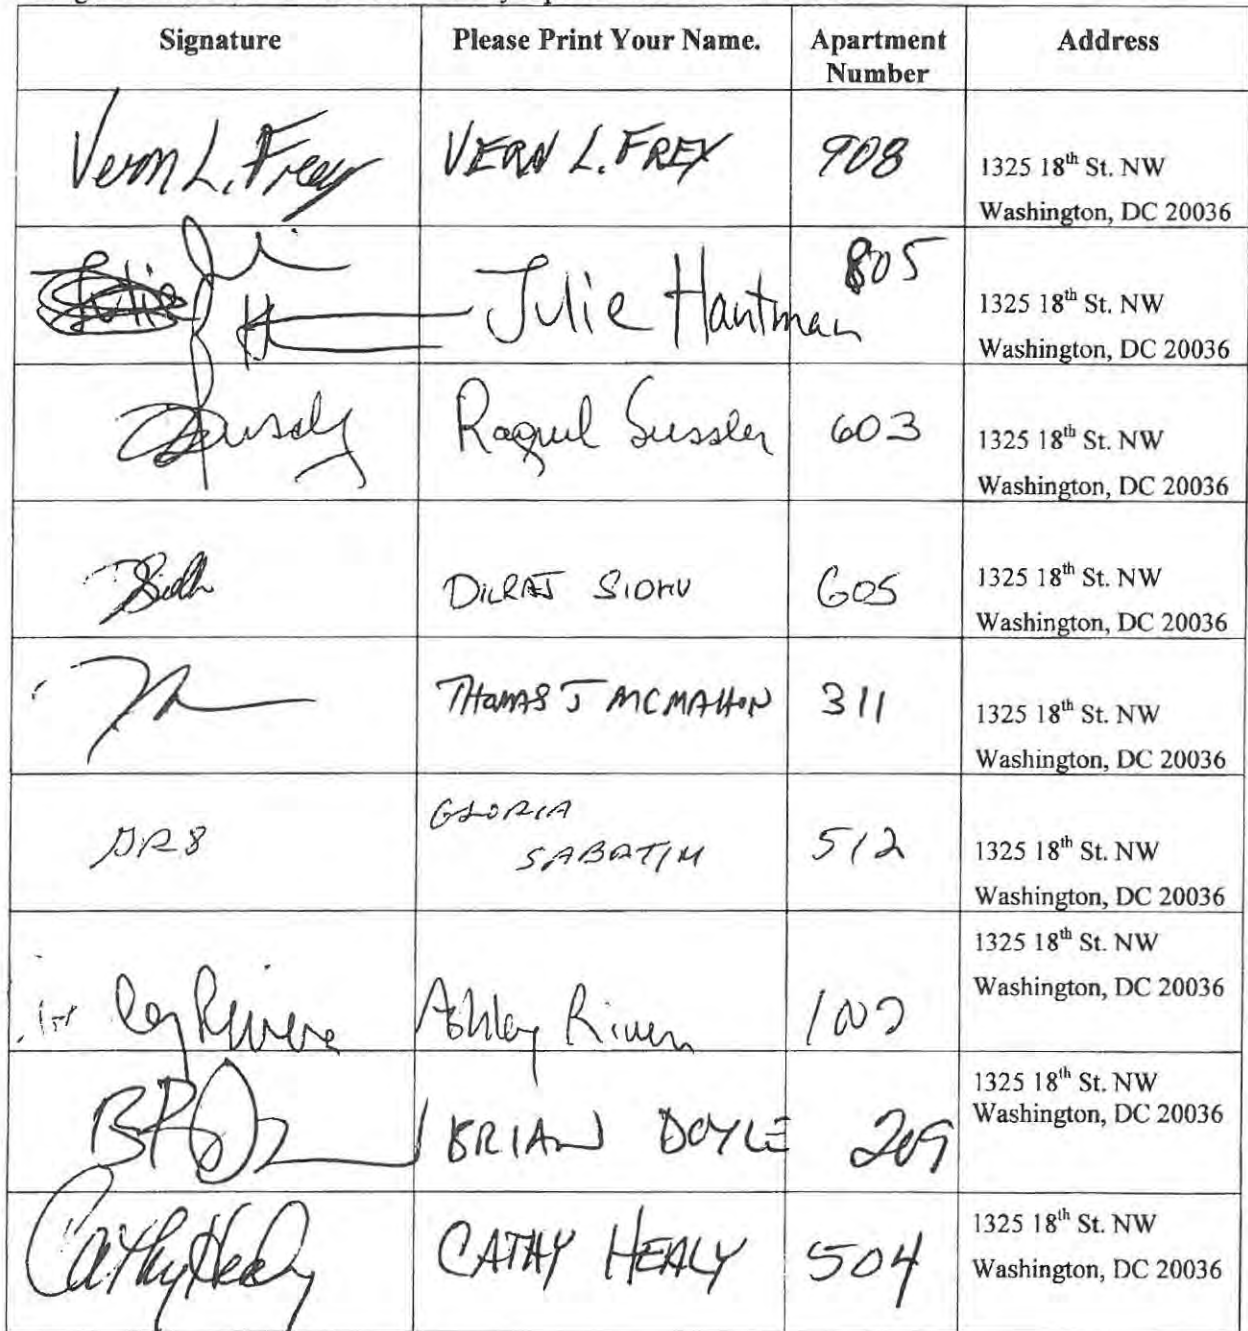 Signature Please Print Your Name. Apartment Number Address
Vern L. Frey VERN L. FREY 908 1325 18th St. NW
Washington, DC 20036
Julie Julie Hantman 805 1325 18th St. NW
Washington, DC 20036
Raquel Sussler 603 1325 18th St. NW
Washington, DC 20036
DILRAJ SIDHU 605 1325 18th St. NW
Washington, DC 20036
THOMAS J MCMAHON 311 1325 18th St. NW
Washington, DC 20036
GLORIA
SABATIM 512 1325 18th St. NW
Washington, DC 20036
1325 18th St. NW
Ashley River Washington, DC 20036
1325 18th St. NW
BRIAN DOYLE 209 Washington, DC 20036
Cathy Healy CATHY HEALY 504 1325 18th St. NW
Washington, DC 20036